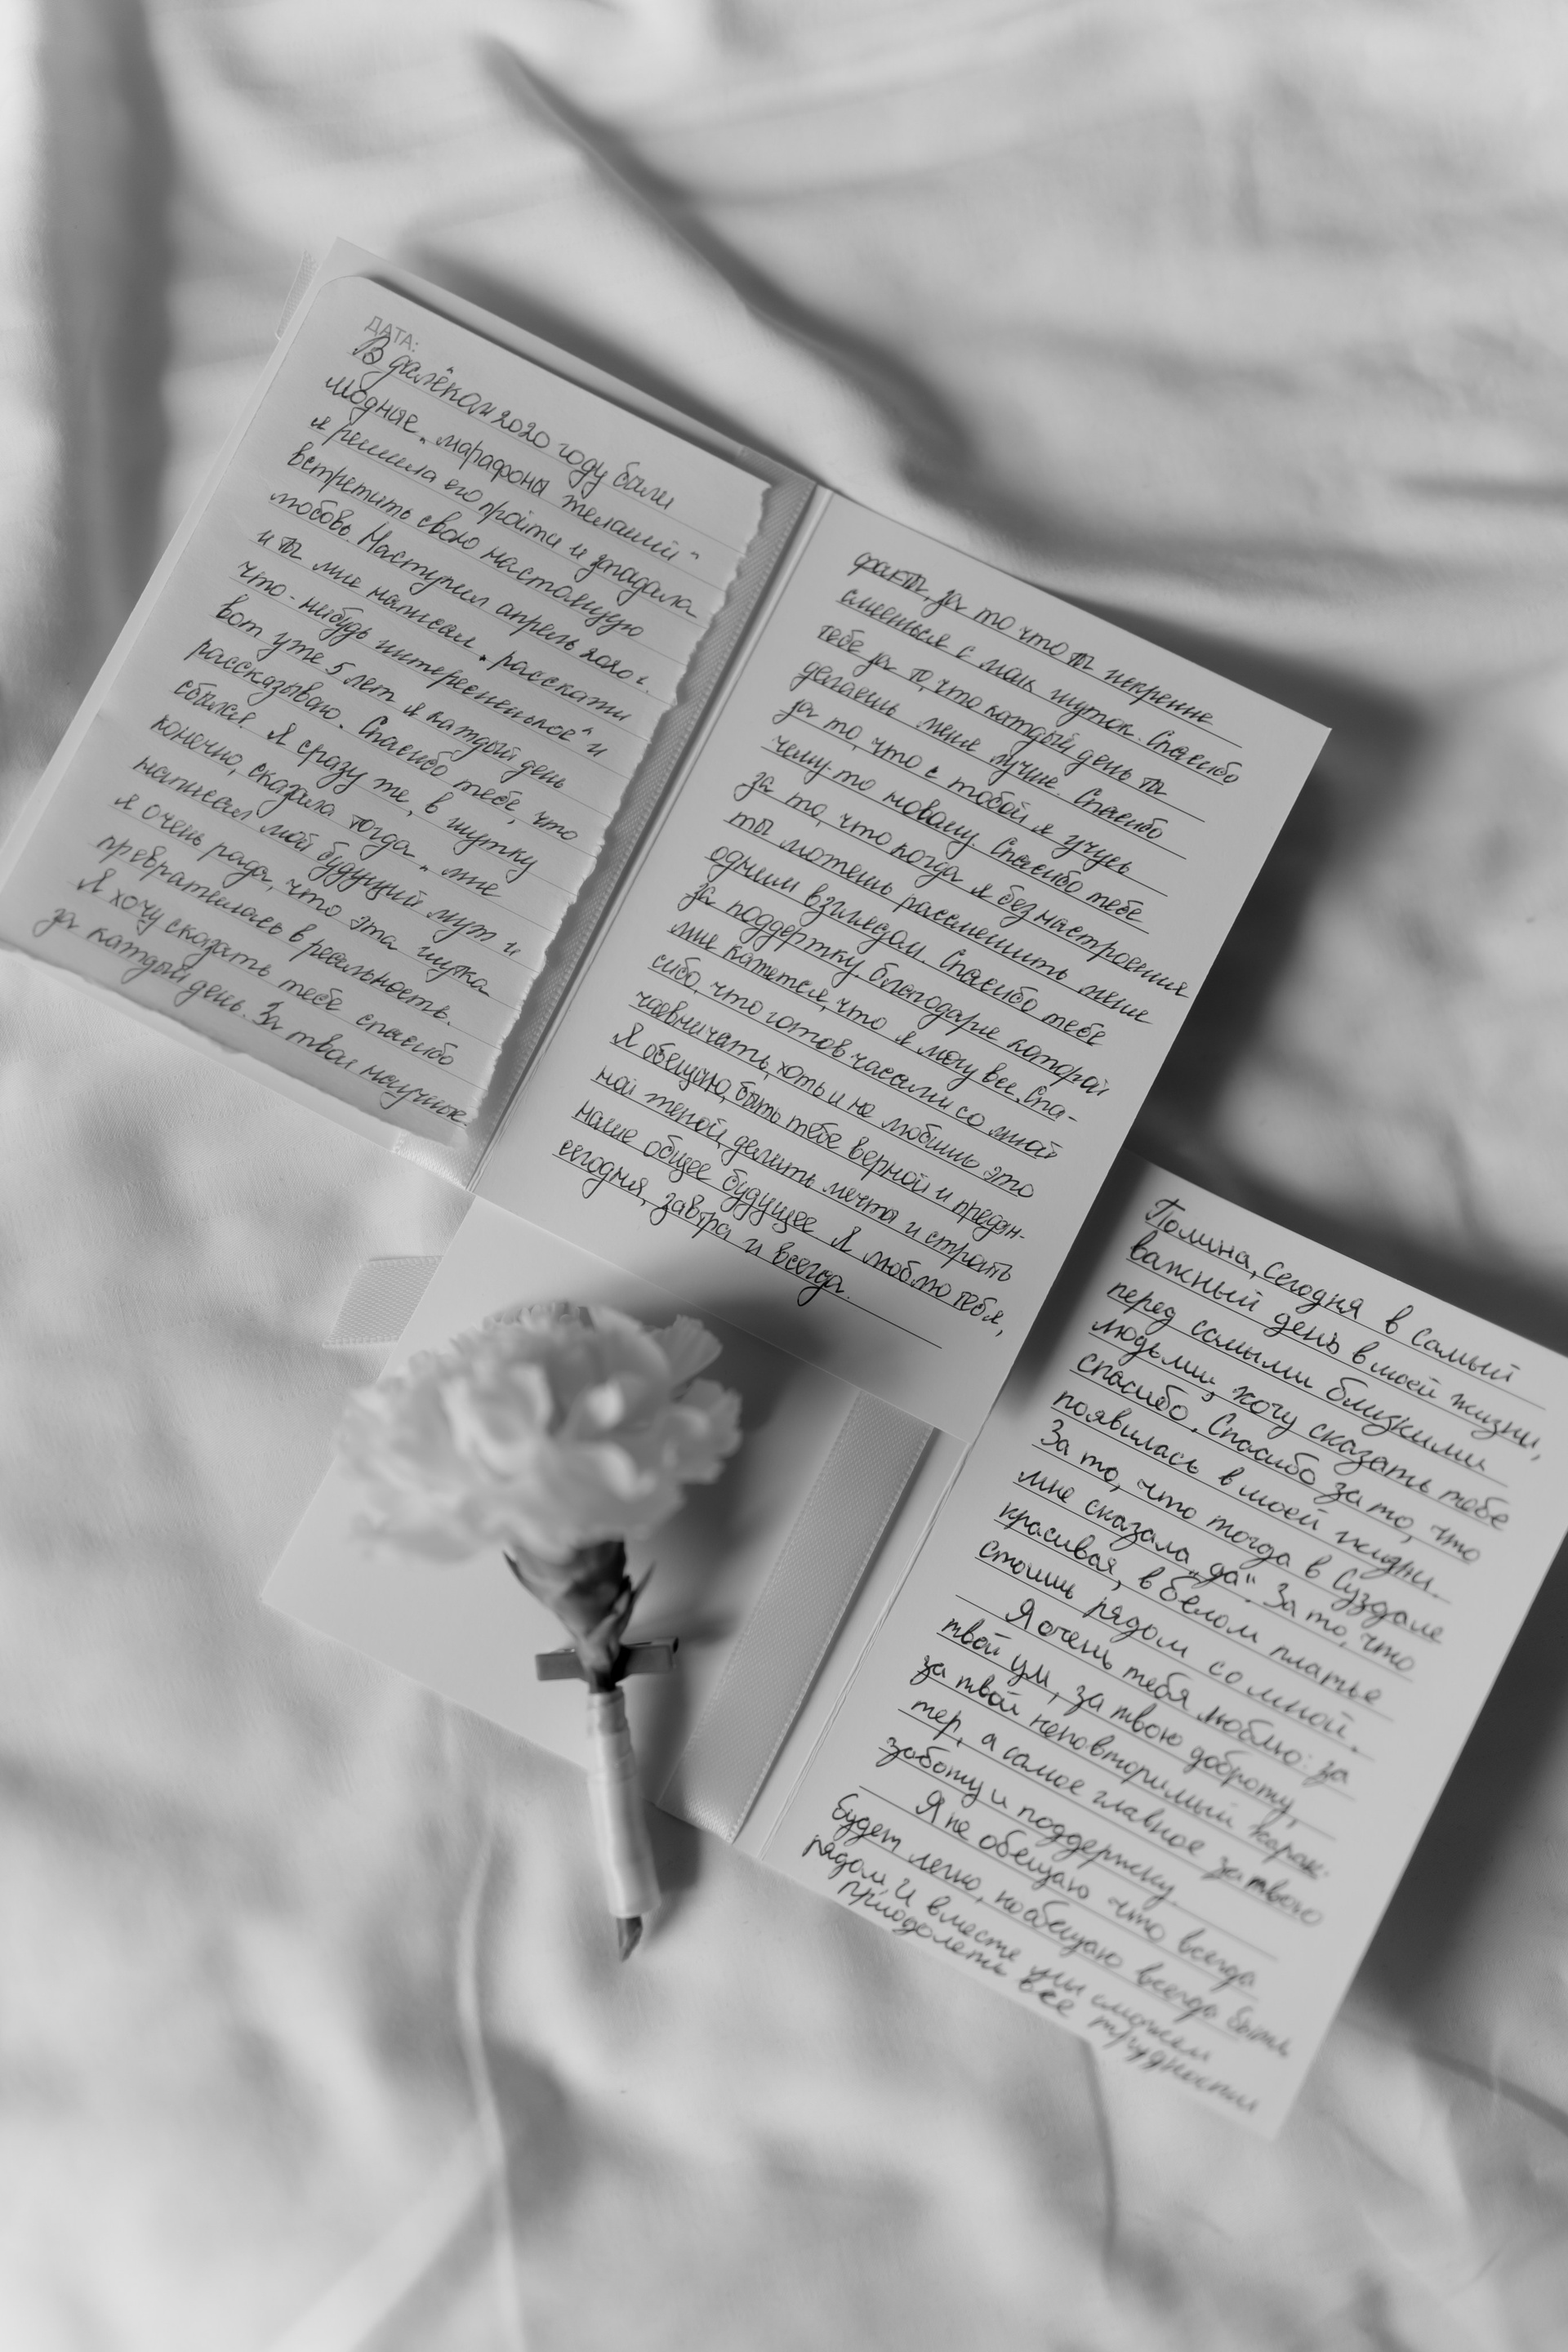 ДАТА:
В далёком 2020 году были
модные „марафоны желаний“
я решила его пройти и загадала
встретить свою настоящую
любовь. Наступил апрель 2020 г.
и ты мне написал „расскажи
что-нибудь интересненькое“ и
вот уже 5 лет я каждый день
рассказываю. Спасибо тебе, что
сбылся. Я сразу же, в шутку
конечно, сказала тогда „мне
написал мой будущий муж и
я очень рада, что эта шутка
превратилась в реальность.
Я хочу сказать тебе спасибо
за каждый день. За твои научные
факты, за то что ты искренне
смеешься с моих шуток. Спасибо
тебе за то, что каждый день ты
делаешь меня лучше. Спасибо
за то, что с тобой я учусь
чему-то новому. Спасибо тебе
за то, что когда я без настроения
ты можешь рассмешить меня
одним взглядом. Спасибо тебе
за поддержку, благодаря которой
мне кажется, что я могу все. Спа-
сибо, что готов часами со мной
чаевничать, хоть и не любишь это
Я обещаю, быть тебе верной и предан-
ной женой, делить мечты и строить
наше общее будущее. Я люблю тебя,
сегодня, завтра и всегда.
Полина, сегодня в самый
важный день в моей жизни,
перед самыми близкими
людьми, хочу сказать тебе
спасибо. Спасибо за то, что
появилась в моей жизни.
За то, что тогда в Суздале
мне сказала „да“. За то, что
красивая, в белом платье
стоишь рядом со мной.
Я очень тебя люблю: за
твой ум, за твою доброту,
за твой неповторимый харак-
тер, а самое главное за твою
заботу и поддержку.
Я не обещаю что всегда
будет легко, но обещаю всегда быть
рядом. И вместе мы сможем
приодолеть все трудности